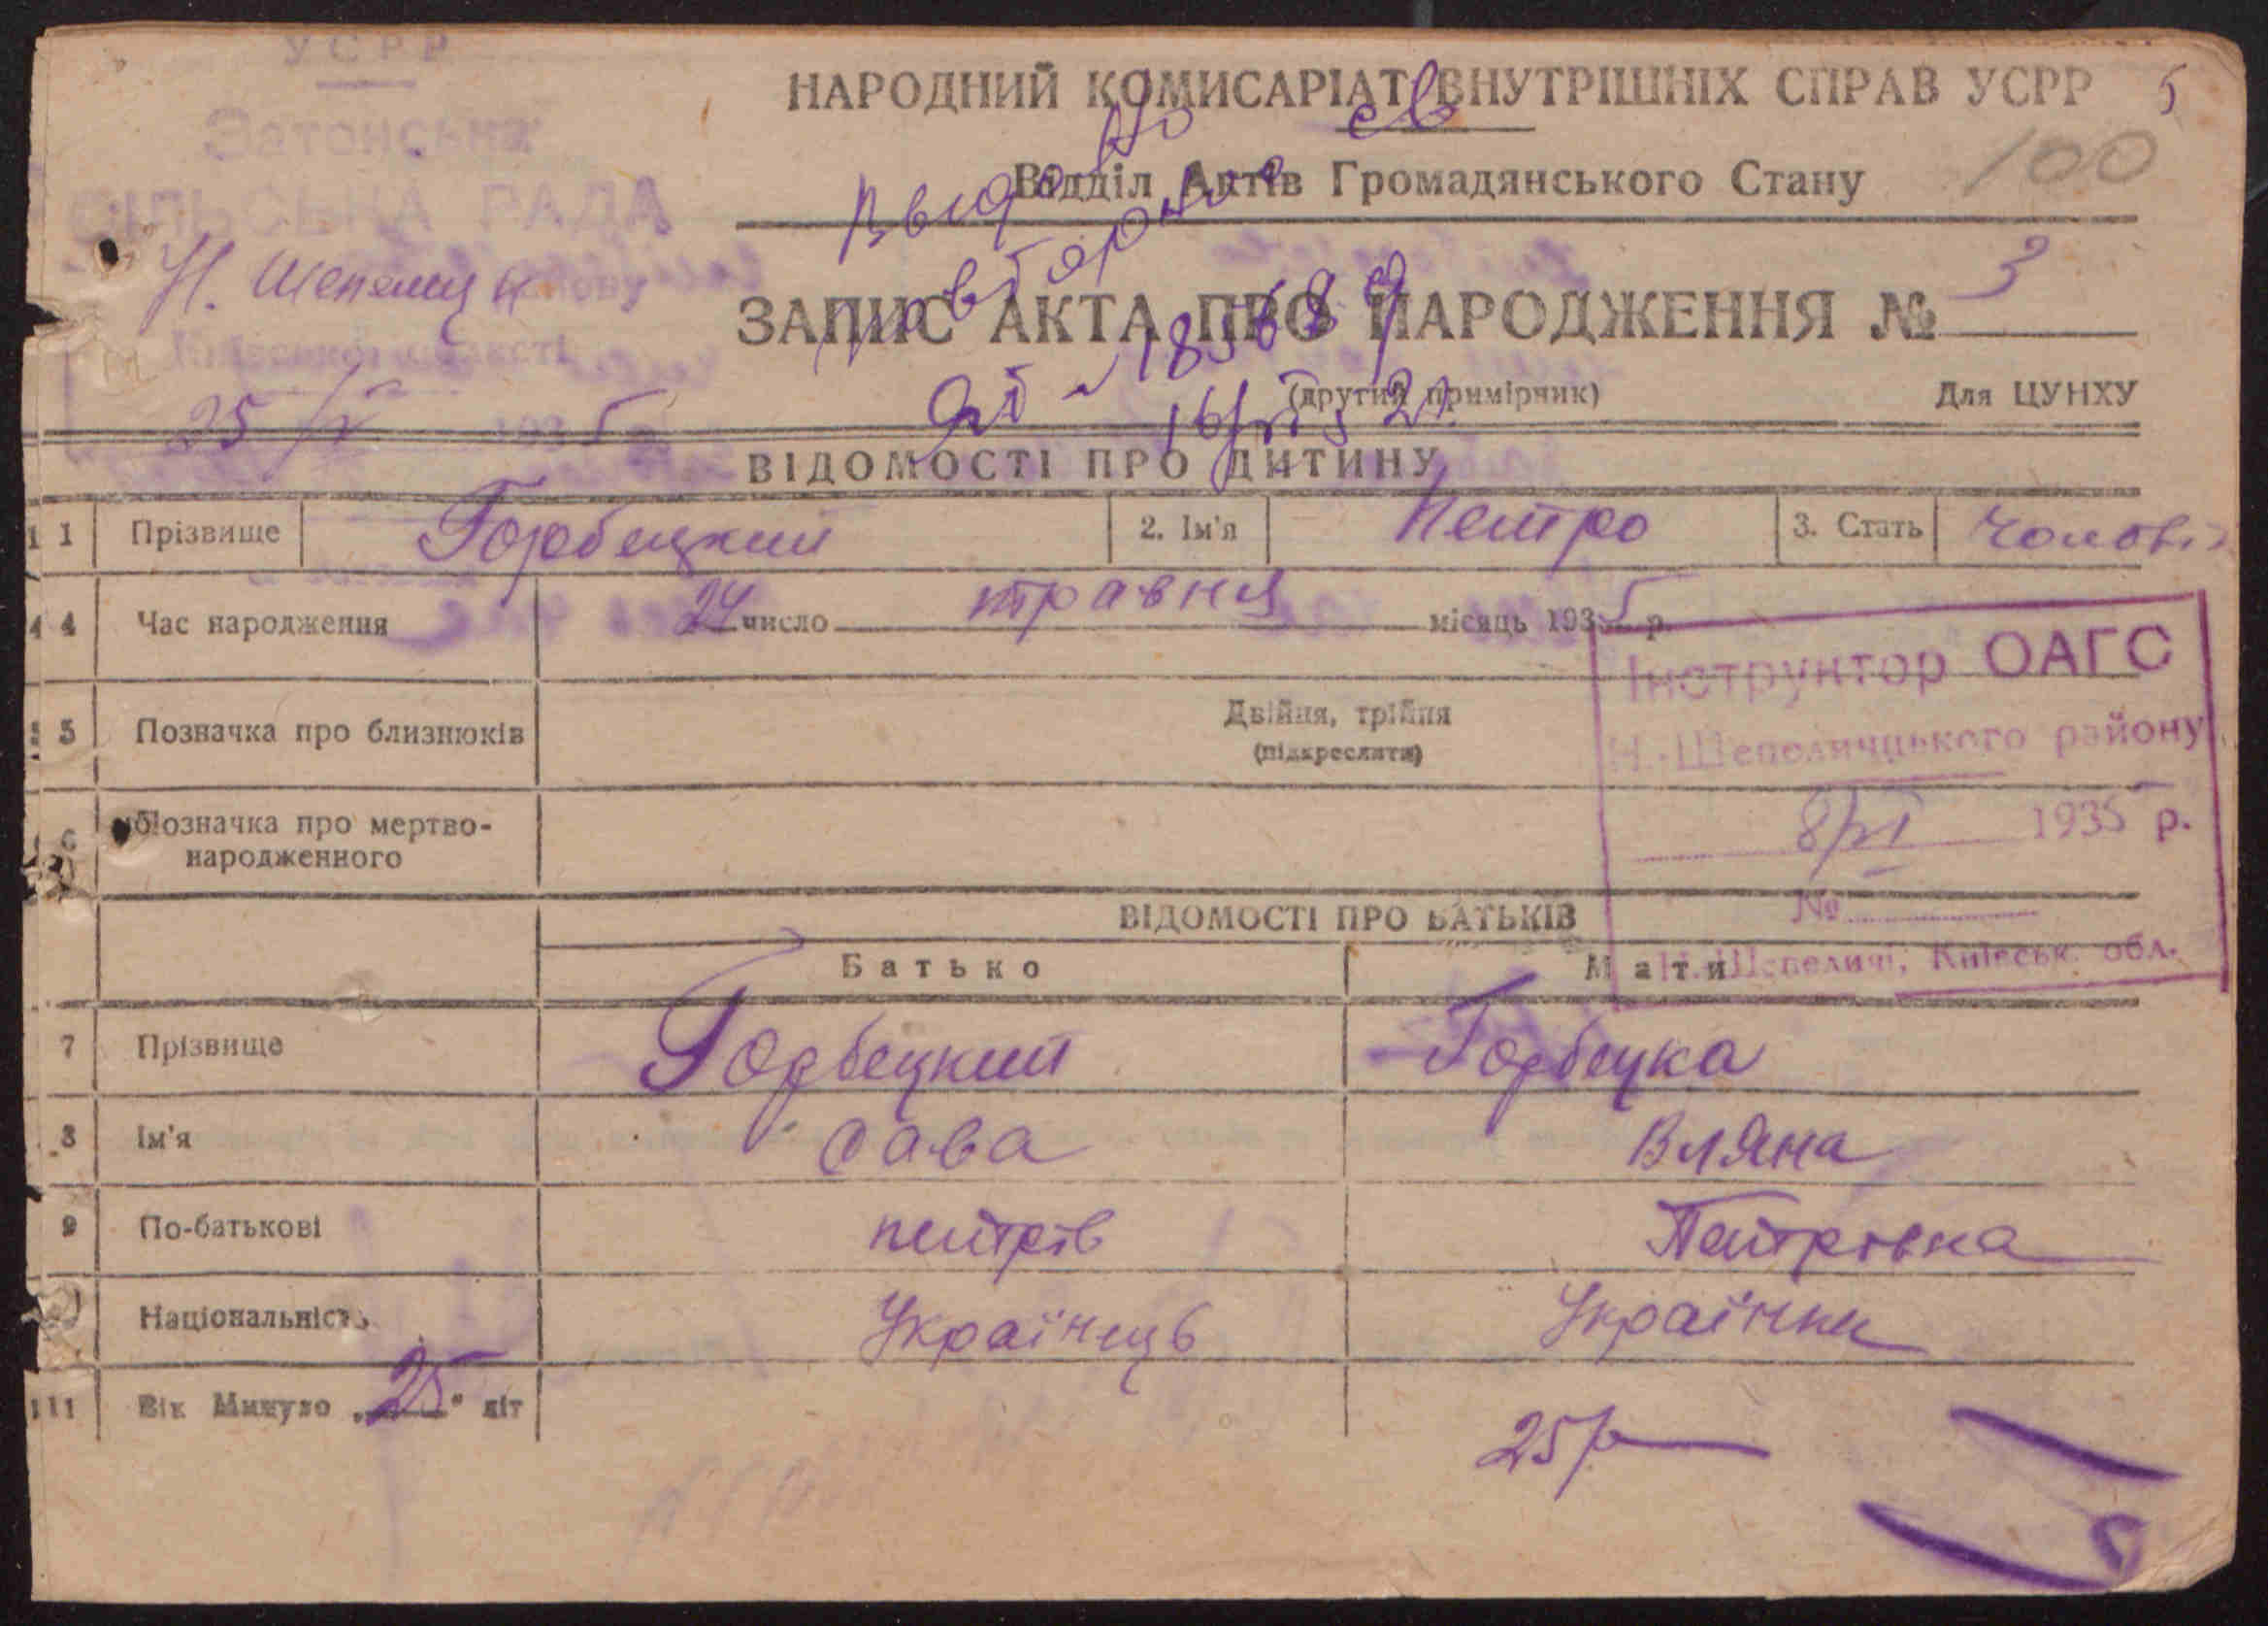 УСРР
Затонська
СІЛЬСЬКА РАДА
Н. Шепелиц
Київської області
25/V 1935
НАРОДНИЙ КОМИСАРІАТ ВНУТРІШНІХ СПРАВ УСРР 5
100
Відділ Актів Громадянського Стану
ЗАПИС АКТА ПРО НАРОДЖЕННЯ № 3
(другий примірник) Для ЦУНХУ
Выдано
повторно
ВІДОМОСТІ ПРО ДИТИНУ
1 1 Прізвище Горбецкий 2. Ім'я Петро 3. Стать Чолові
4 4 Час народження 24 число травня місяць 1935 р.
Інструктор ОАГС
Н.-Шепеличцького району
8/VI 1935 р.
№
Н. Шепеличі, Київськ. обл.
5 Позначка про близнюків Двійня, трійня
(підкреслити)
6 Позначка про мертво-
народженного
ВІДОМОСТІ ПРО БАТЬКІВ
Батько Мати
7 Прізвище Горбецкий Горбецка
8 Ім'я Сава Вляна
9 По-батькові петрів Петровна
Національність Українець Українка
11 Вік Минуло „25" літ 25р